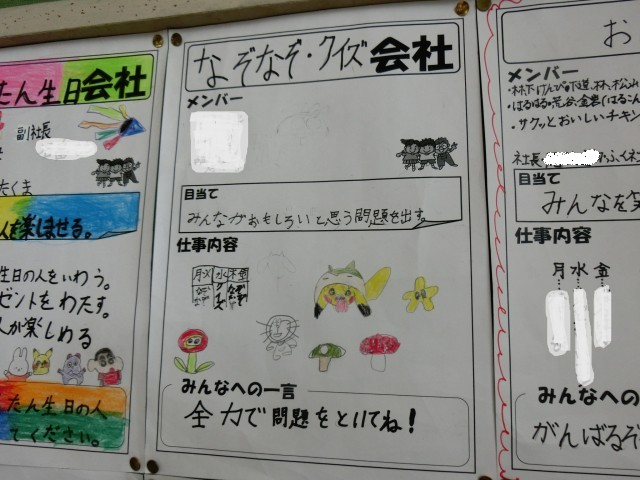 たん生日会社
副社長
たくま
人を楽しませる。
生日の人をいわう。
ゼントをわたす。
が楽しめる
たん生日の人
てください。
なぞなぞ・クイズ会社
メンバー
目当て
みんながおもしろいと思う問題を出す。
仕事内容
月火水木金
みんなへの一言
全力で問題をといてね！
お
メンバー
・サクッとおいしいチキン
社長
目当て
みんなを笑
仕事内容
月水金
みんなへの
がんばるぞ